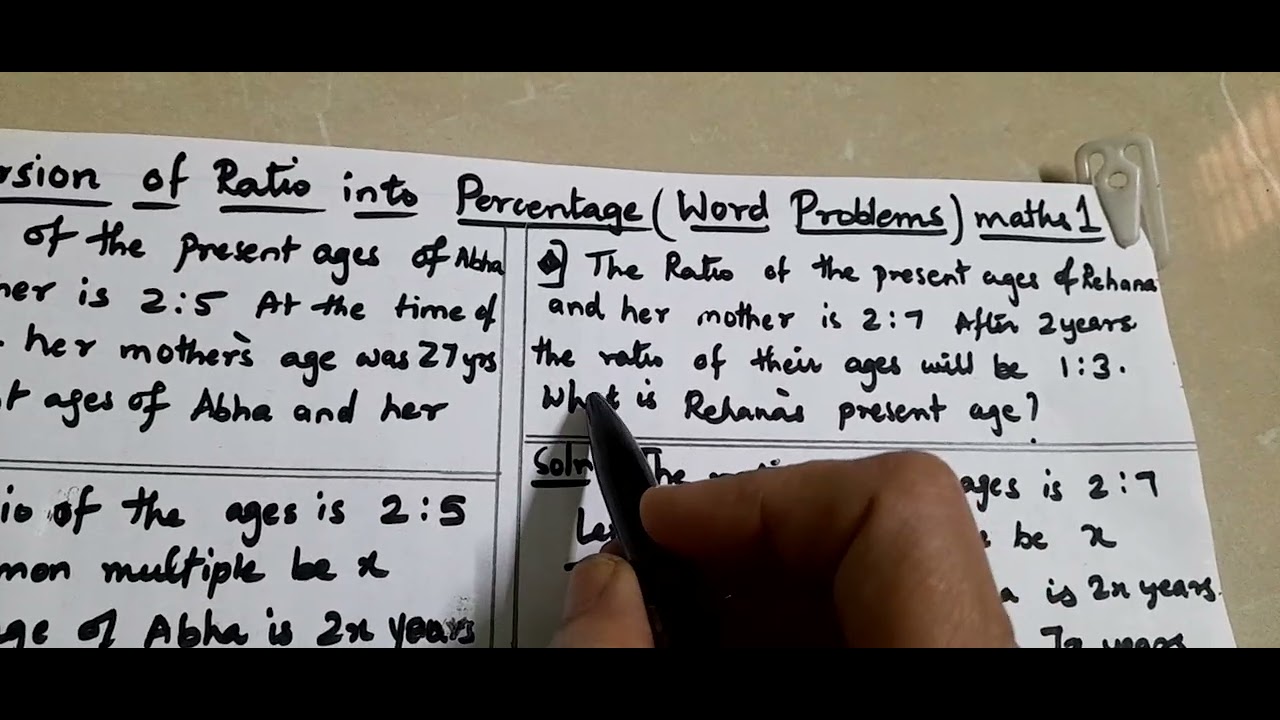 rsion of Ratio into Percentage (Word Problems) maths 1
of the present ages of Abha
her is 2:5 At the time of
her mother's age was 27 yrs
ages of Abha and her
io of the ages is 2:5
mon multiple be x
ge of Abha is 2x years
Q] The Ratio of the present ages of Rehana
and her mother is 2:7 After 2 years
the ratio of their ages will be 1:3.
What is Rehana's present age?
Soln The ages is 2:7
be x
is 2x years.
7x years